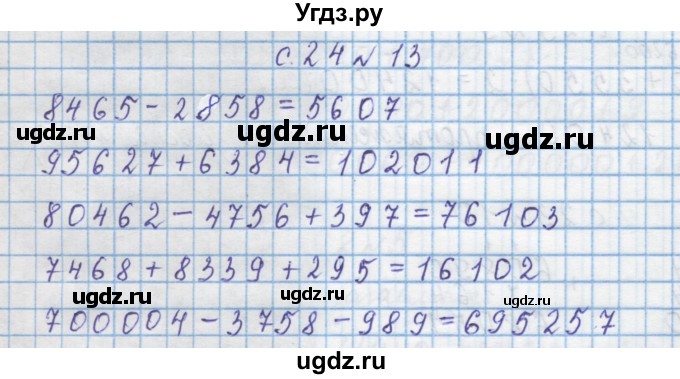 Угдз.ру
с. 24 № 13
8465 - 2858 = 5607
ugdz.ru ugdz.ru ugdz.ru
95627 + 6384 = 102011
80462 - 4756 + 397 = 76103
7468 + 8339 + 295 = 16102
ugdz.ru ugdz.ru ugdz.ru
700004 - 3758 - 989 = 695257
ugdz.ru